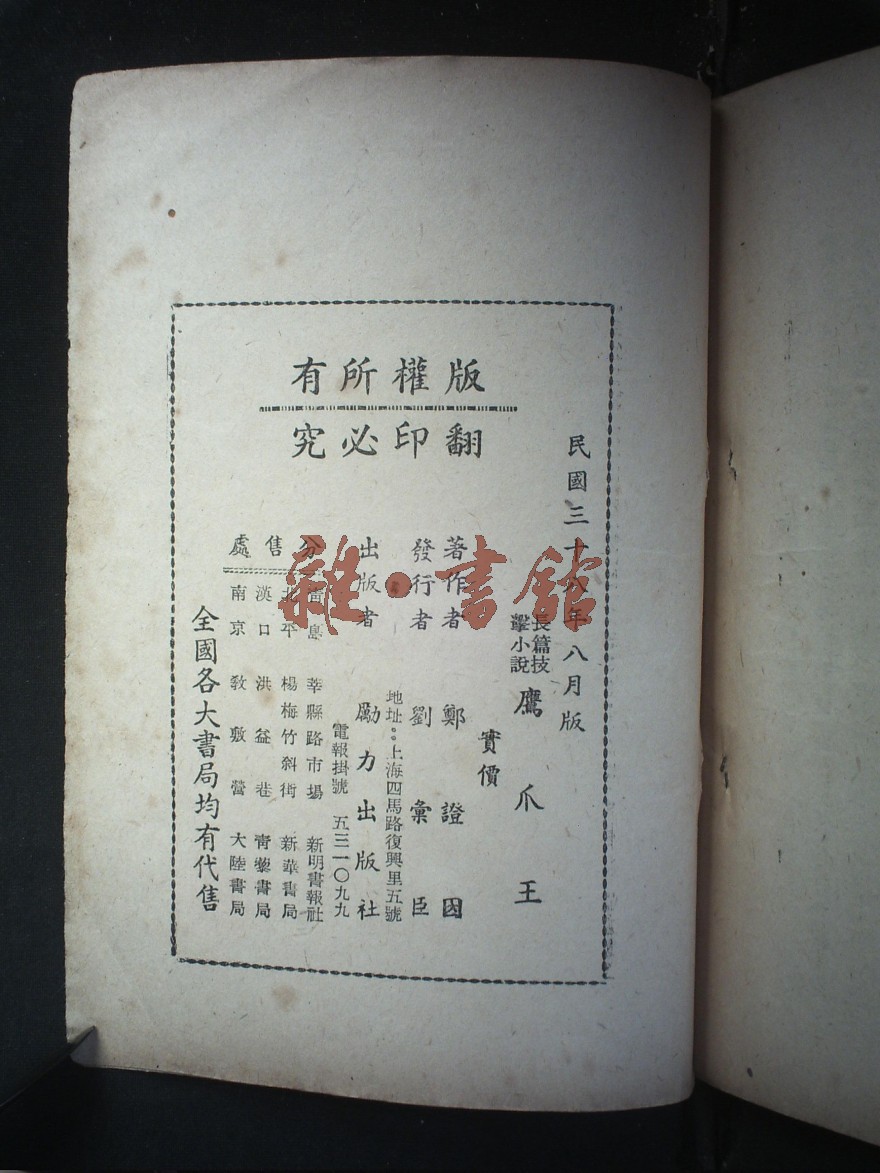 版權所有
翻印必究
民國三十八年八月版
長篇技擊小說 鷹爪王
實價
著作者 鄭證因
發行者 劉彙臣
地址：上海四馬路復興里五號
出版者 勵力出版社
電報掛號 五三一〇九九
分售處
青島 莘縣路市場 新明書報社
北平 楊梅竹斜街 新華書局
漢口 洪益巷 青藜書局
南京 敎敷營 大陸書局
全國各大書局均有代售
雜·書館